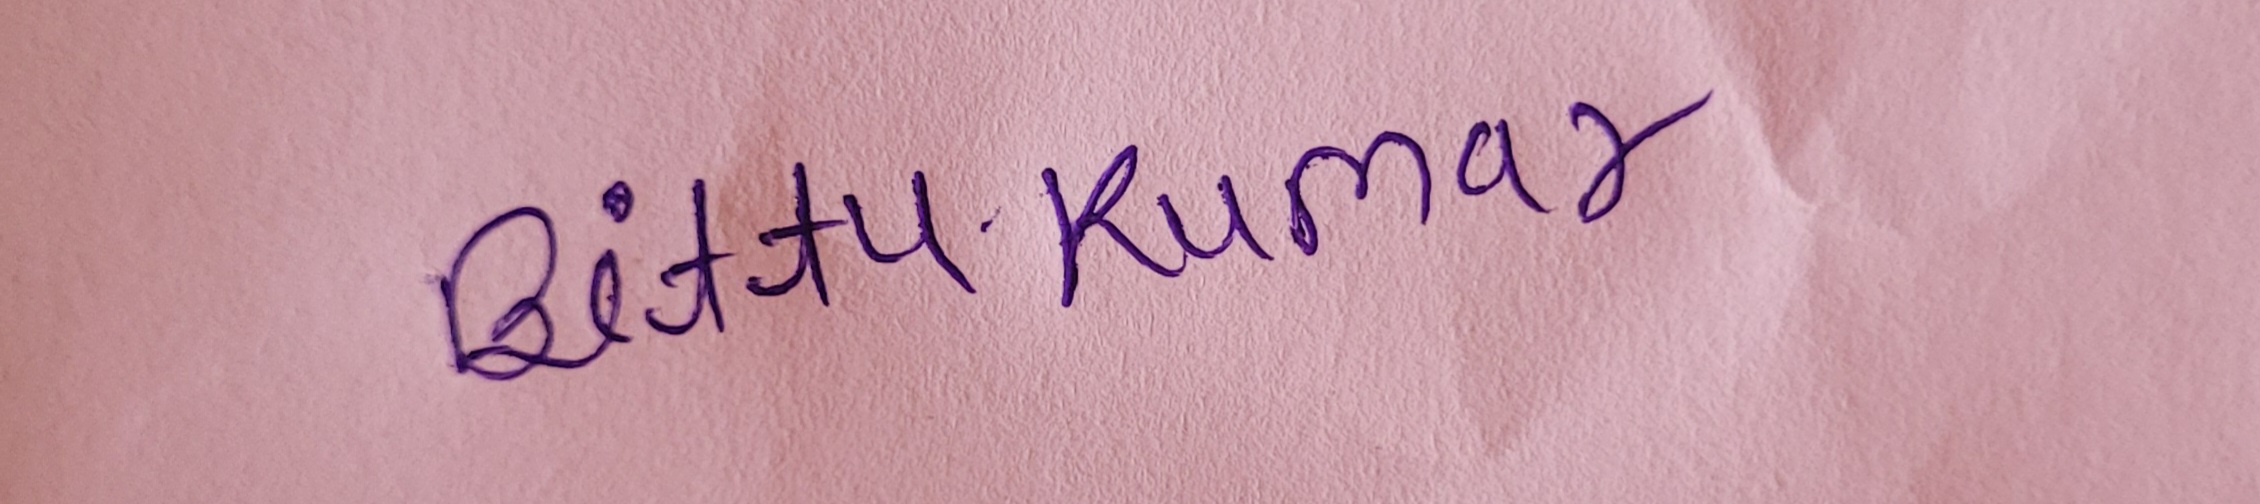 Bittu Kumar